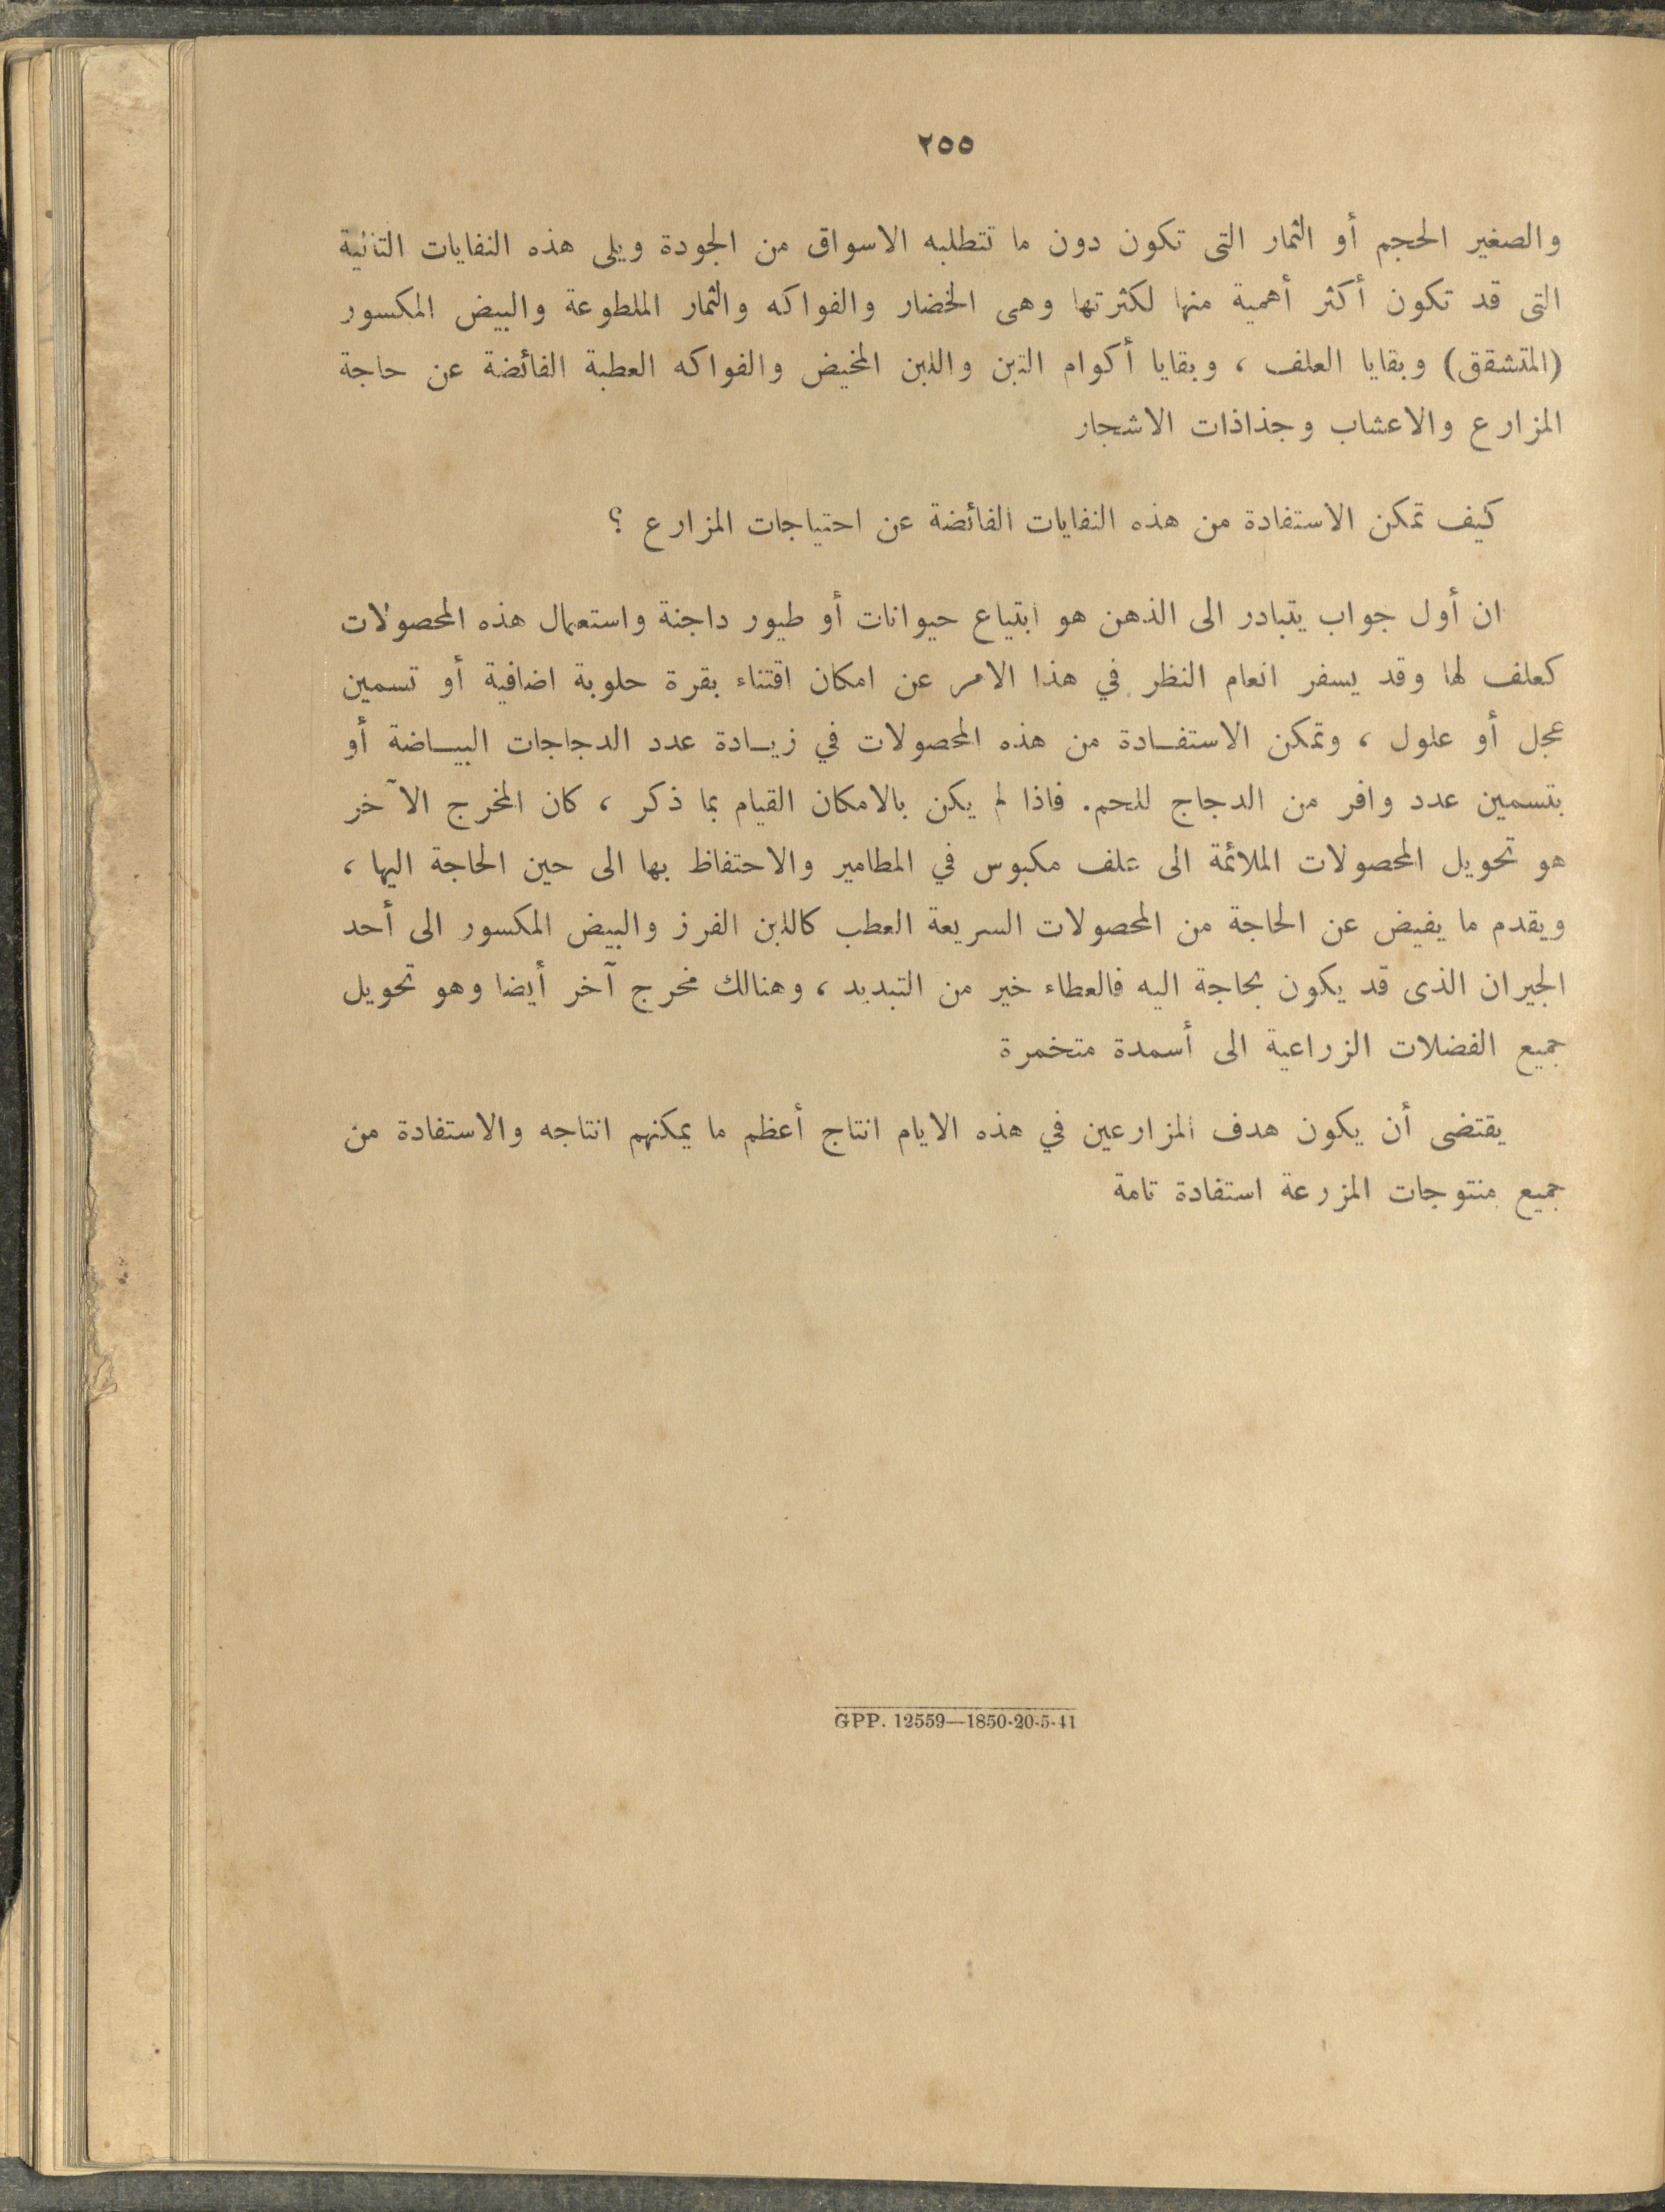 ٢٥٥
والصغير الحجم أو الثمار التى تكون دون ما تتطلبه الاسواق من الجودة ويلى هذه النفايات الثانية
التى قد تكون أكثر أهمية منها لكثرتها وهى الخضار والفواكه والثمار الملطوعة والبيض المكسور
(المتشقق) وبقايا العلف ، وبقايا أكوام التبن واللبن المخيض والفواكه العطبة الفائضة عن حاجة
المزارع والاعشاب وجذاذات الاشجار
كيف تمكن الاستفادة من هذه النفايات الفائضة عن احتياجات المزارع ؟
ان أول جواب يتبادر الى الذهن هو ابتياع حيوانات أو طيور داجنة واستعمال هذه المحصولات
كعلف لها وقد يسفر انعام النظر في هذا الامر عن امكان اقتناء بقرة حلوبة اضافية أو تسمين
عجل أو علول ، وتمكن الاستفادة من هذه المحصولات في زيادة عدد الدجاجات البياضة أو
بتسمين عدد وافر من الدجاج للحم. فاذا لم يكن بالامكان القيام بما ذكر ، كان المخرج الآخر
هو تحويل المحصولات الملائمة الى علف مكبوس في المطامير والاحتفاظ بها الى حين الحاجة اليها ،
ويقدم ما يفيض عن الحاجة من المحصولات السريعة العطب كاللبن الفرز والبيض المكسور الى أحد
الجيران الذى قد يكون بحاجة اليه فالعطاء خير من التبديد ، وهنالك مخرج آخر أيضا وهو تحويل
جميع الفضلات الزراعية الى أسمدة متخمرة
يقتضى أن يكون هدف المزارعين في هذه الايام انتاج أعظم ما يمكنهم انتاجه والاستفادة من
جميع منتوجات المزرعة استفادة تامة
GPP. 12559—1850-20-5-41